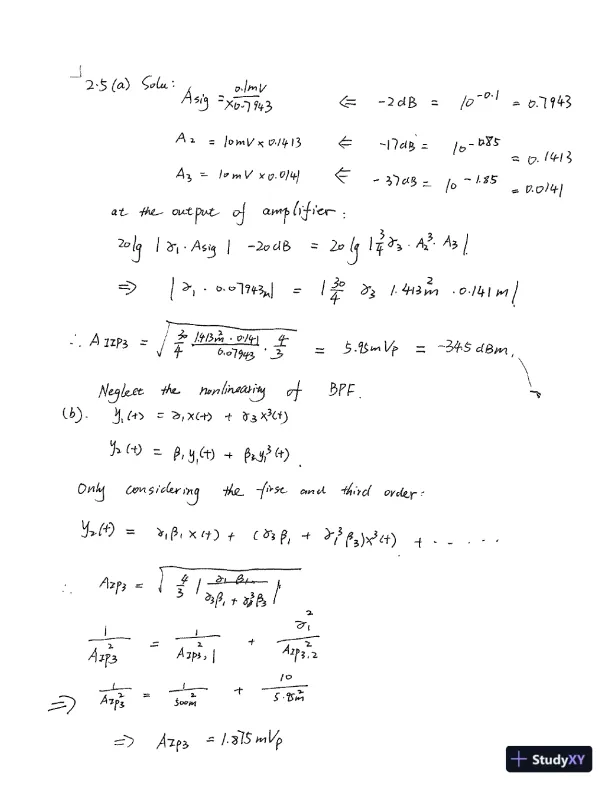 2.5 (a) Solu: A_sig = 0.1mV × 0.7943 ⇐ -2dB = 10^-0.1 = 0.7943
A_2 = 10mV × 0.1413 ⇐ -17dB = 10^-0.85 = 0.1413
A_3 = 10mV × 0.0141 ⇐ -37dB = 10^-1.85 = 0.0141
at the output of amplifier:
20lg |γ_1 · A_sig| - 20dB = 20lg |3/4 γ_3 · A_2^2 · A_3|
⇒ |γ_1 · 0.07943m| = |30/4 γ_3 1.413m^2 · 0.141m|
∴ A_IIP3 = √(30/4 · 1.413m^2 · 0.141/0.07943 · 4/3) = 5.95mVp = -34.5 dBm,
Neglect the nonlinearity of BPF.
(b). y_1(t) = γ_1x(t) + γ_3x^3(t)
y_2(t) = β_1y_1(t) + β_3y_1^3(t).
Only considering the firse and third order:
y_2(t) = γ_1β_1x(t) + (γ_3β_1 + γ_1^3β_3)x^3(t) + - - - - -
∴ A_IP3 = √(4/3 |γ_1β_1/(γ_3β_1 + γ_1^3β_3)|)
1/A_IP3^2 = 1/A_IP3,1^2 + γ_1^2/A_IP3,2^2
⇒ 1/A_IP3^2 = 1/500m^2 + 10/5.95m^2
⇒ A_IP3 = 1.875mVp
StudyXY